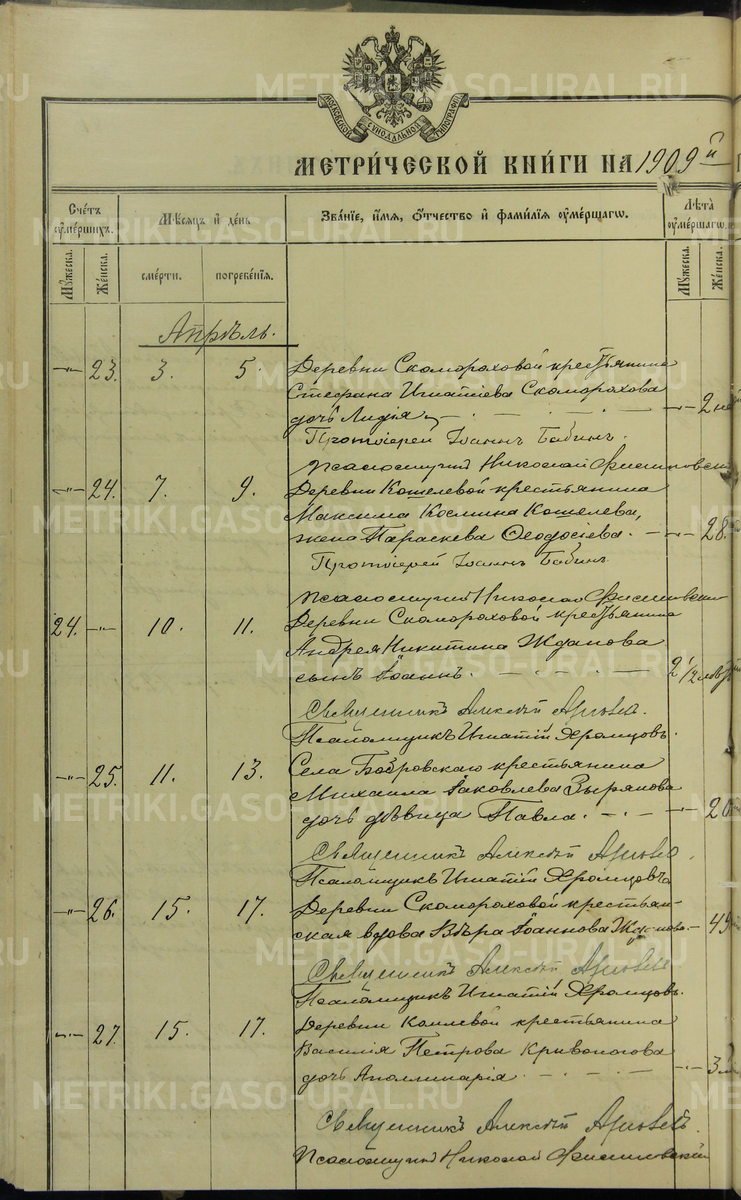 МОСКОВСКОЙ СѴНОДАЛЬНОЙ ТИПОГРАФІИ
МЕТРИ́ЧЕСКОЙ КНИ́ГИ НА 1909й
Сче́тъ ᲂу҆ме́ршихъ.
Мѣ́сяцъ и҆ де́нь
Зва́ніе, и҆́мя, ѻ҆́тчество и҆ фами́лія ᲂу҆ме́ршагѡ.
Лѣ́та ᲂу҆ме́ршагѡ.
Му́жеска.
Же́нска.
сме́рти.
погребе́нія.
Му́жеска.
Же́нска.
Апрѣль.
-"- 23. 3. 5. Деревни Скомороховой крестьянина
Стефана Игнатіева Скоморохова
дочь Лидія -"- 2
Протоіерей Іоаннъ Бабинъ.
Псаломщикъ Николай
-"- 24. 7. 9. Деревни Кошелевой крестьянина
Максима Космина Кошелева,
жена Параскева Ѳеодосіева. -"- 28.
Протоіерей Іоаннъ Бабинъ
Псаломщикъ Николай
24. -"- 10. 11. Деревни Скомороховой крестьянина
Андрея Никитина Жданова
сынъ Іоаннъ. 2 1/2
Священникъ Алексѣй
Псаломщикъ Игнатій Хромцовъ.
-"- 25. 11. 13. Села Бобровскаго крестьянина
Михаила Іаковлева Зырянова
дочь дѣвица Павла. -"- 20
Священникъ Алексѣй
Псаломщикъ Игнатій Хромцовъ
-"- 26. 15. 17. Деревни Скомороховой крестьян-
ская вдова Вѣра Іоаннова Жданова. -"- 49
Священникъ Алексѣй
Псаломщикъ Игнатій Хромцовъ.
-"- 27. 15. 17. Деревни крестьянина
Василія Петрова Кривоногова
дочь Аполлинарія -"- 3
Священникъ Алексѣй
Псаломщикъ Николай
METRIKI.GASO-URAL.RU